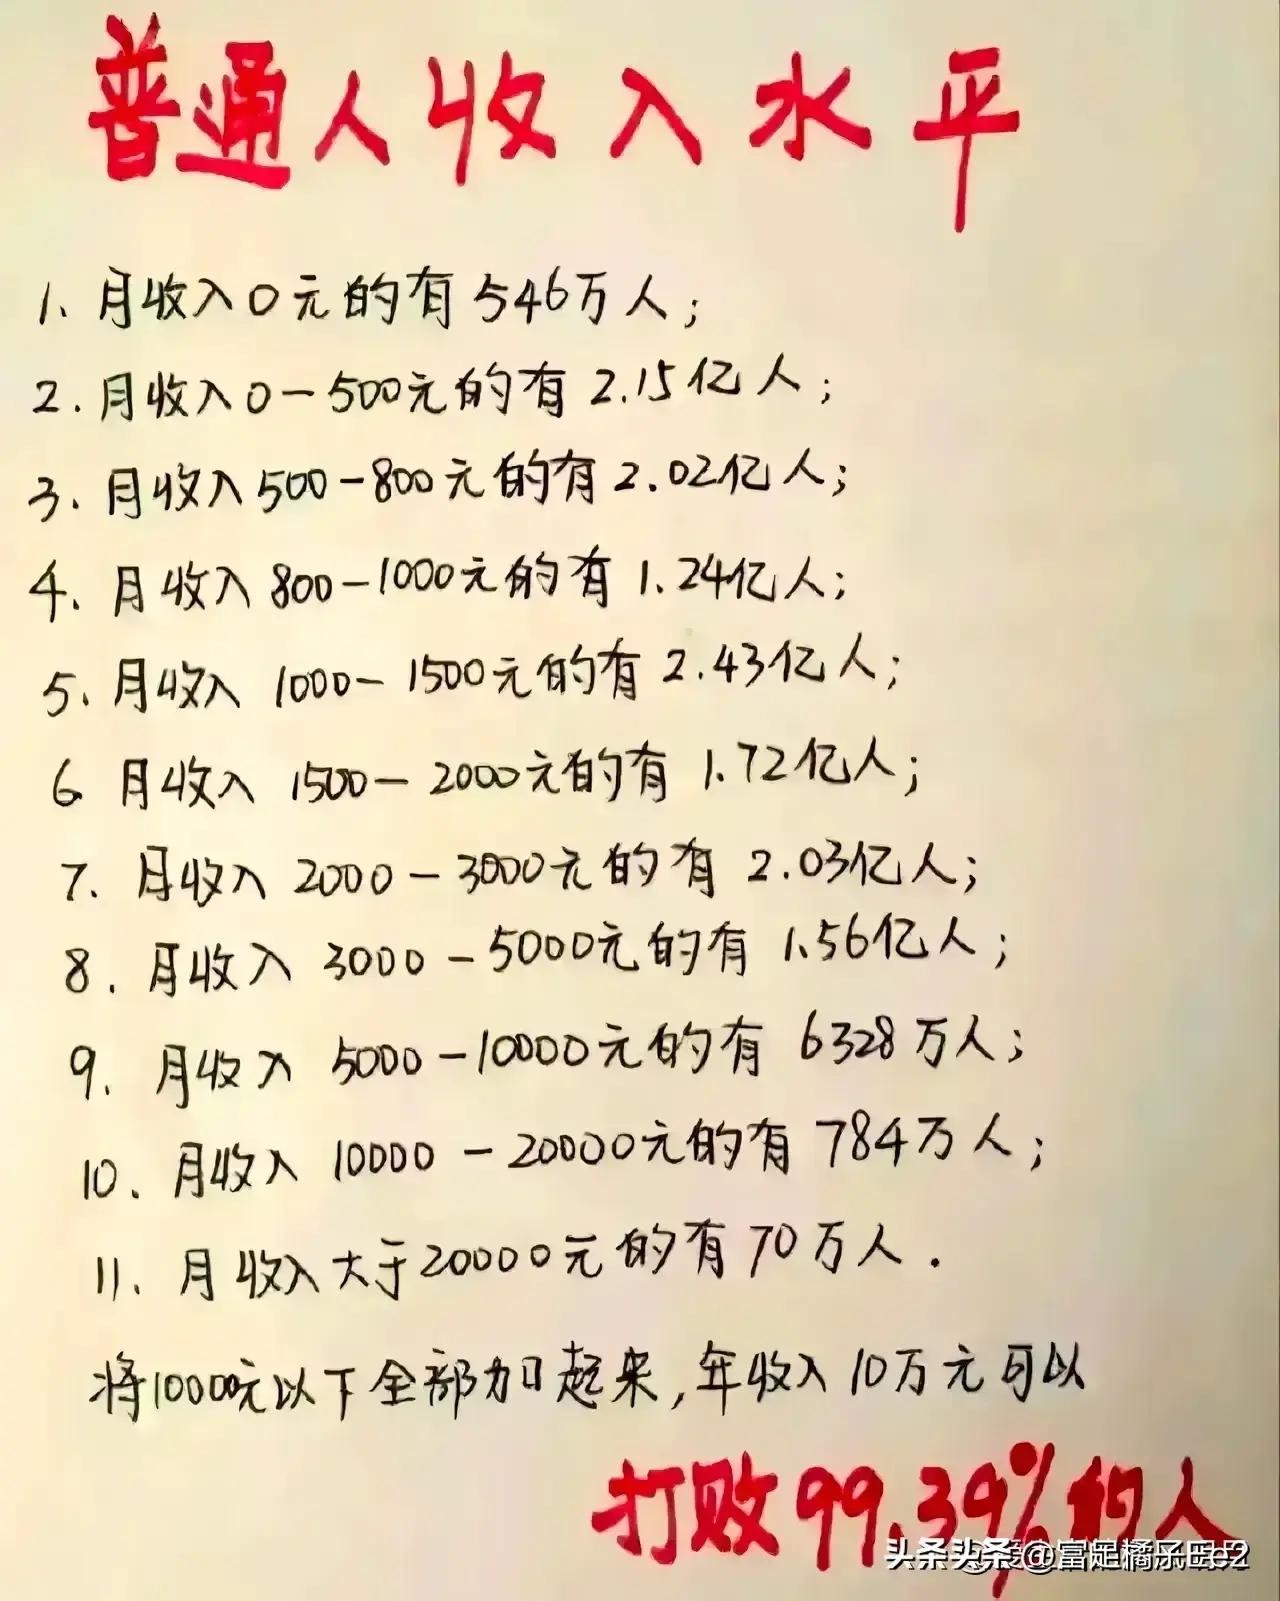 普通人收入水平
1、月收入0元的有546万人;
2.月收入0-500元的有2.15亿人;
3.月收入500-800元的有2.02亿人;
4、月收入800-1000元的有1.24亿人;
5、月收入1000-1500元的有2.43亿人;
6 月收入1500-2000元的有1.72亿人;
7.月收入2000-3000元的有2.03亿人;
8.月收入3000-5000元的有1.56亿人;
9.月收入5000-10000元的有6328万人;
10、月收入10000-20000元的有784万人;
11、月收入大于20000元的有70万人.
将10000元以下全部加起来,年收入10万元可以
打败99.39%的人
头条 @富足橘子